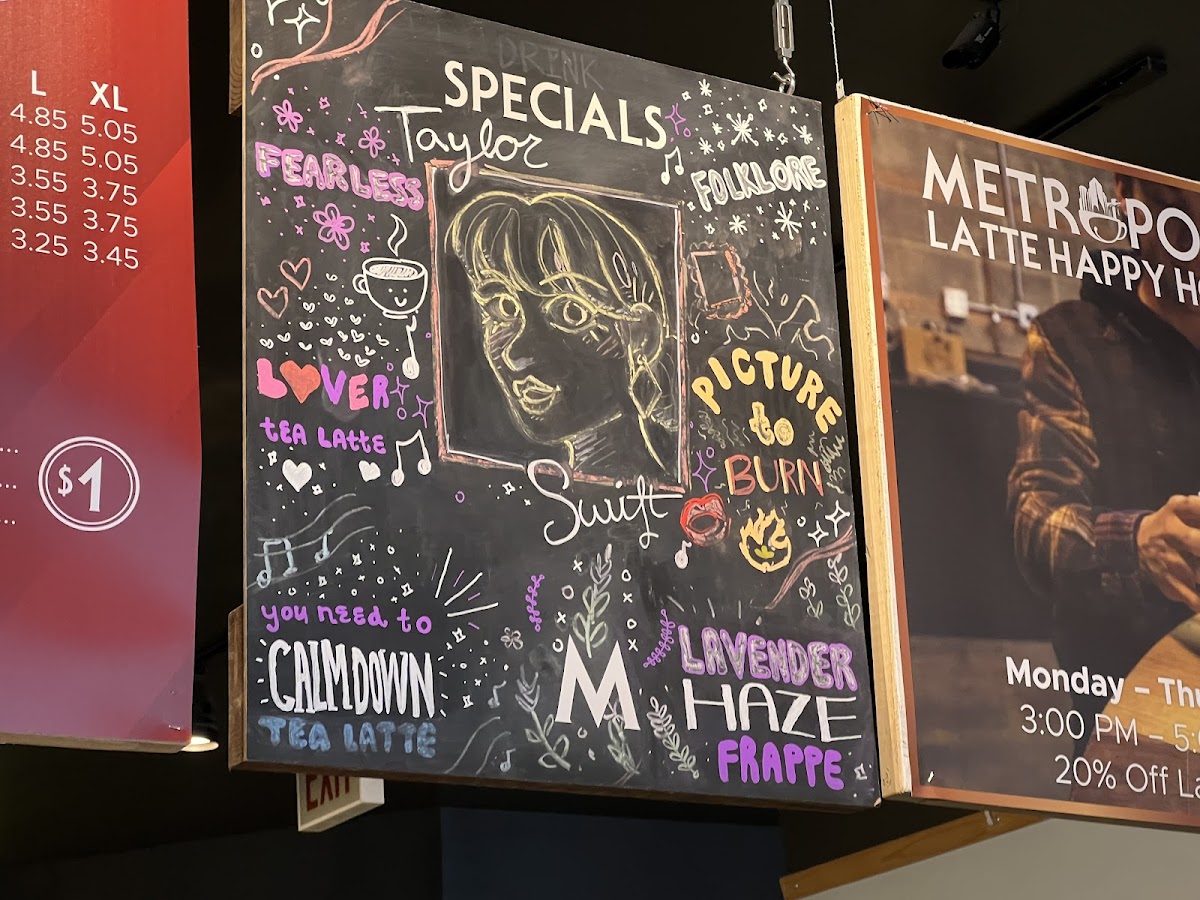 L XL
4.85 5.05
4.85 5.05
3.55 3.75
3.55 3.75
3.25 3.45
$1
DRINK
SPECIALS
Taylor
Swift
FEARLESS
FOLKLORE
LOVER
tea Latte
PICTURE
to
BURN
you need to
CALM DOWN
TEA LATTE
M
LAVENDER
HAZE
FRAPPE
EXIT
METROPO
LATTE HAPPY H
Monday – Th
3:00 PM – 5:
20% Off La